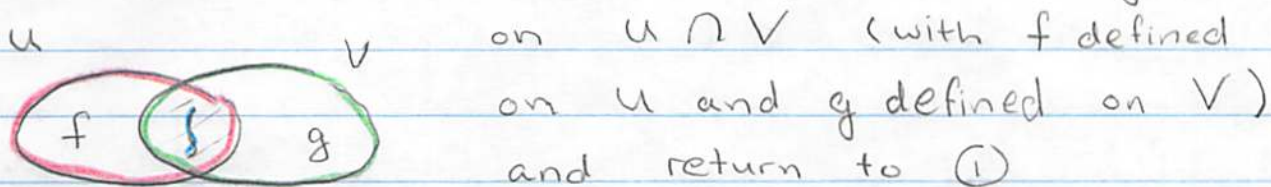 U V
on U ∩ V (with f defined
f g
on U and g defined on V)
and return to ①